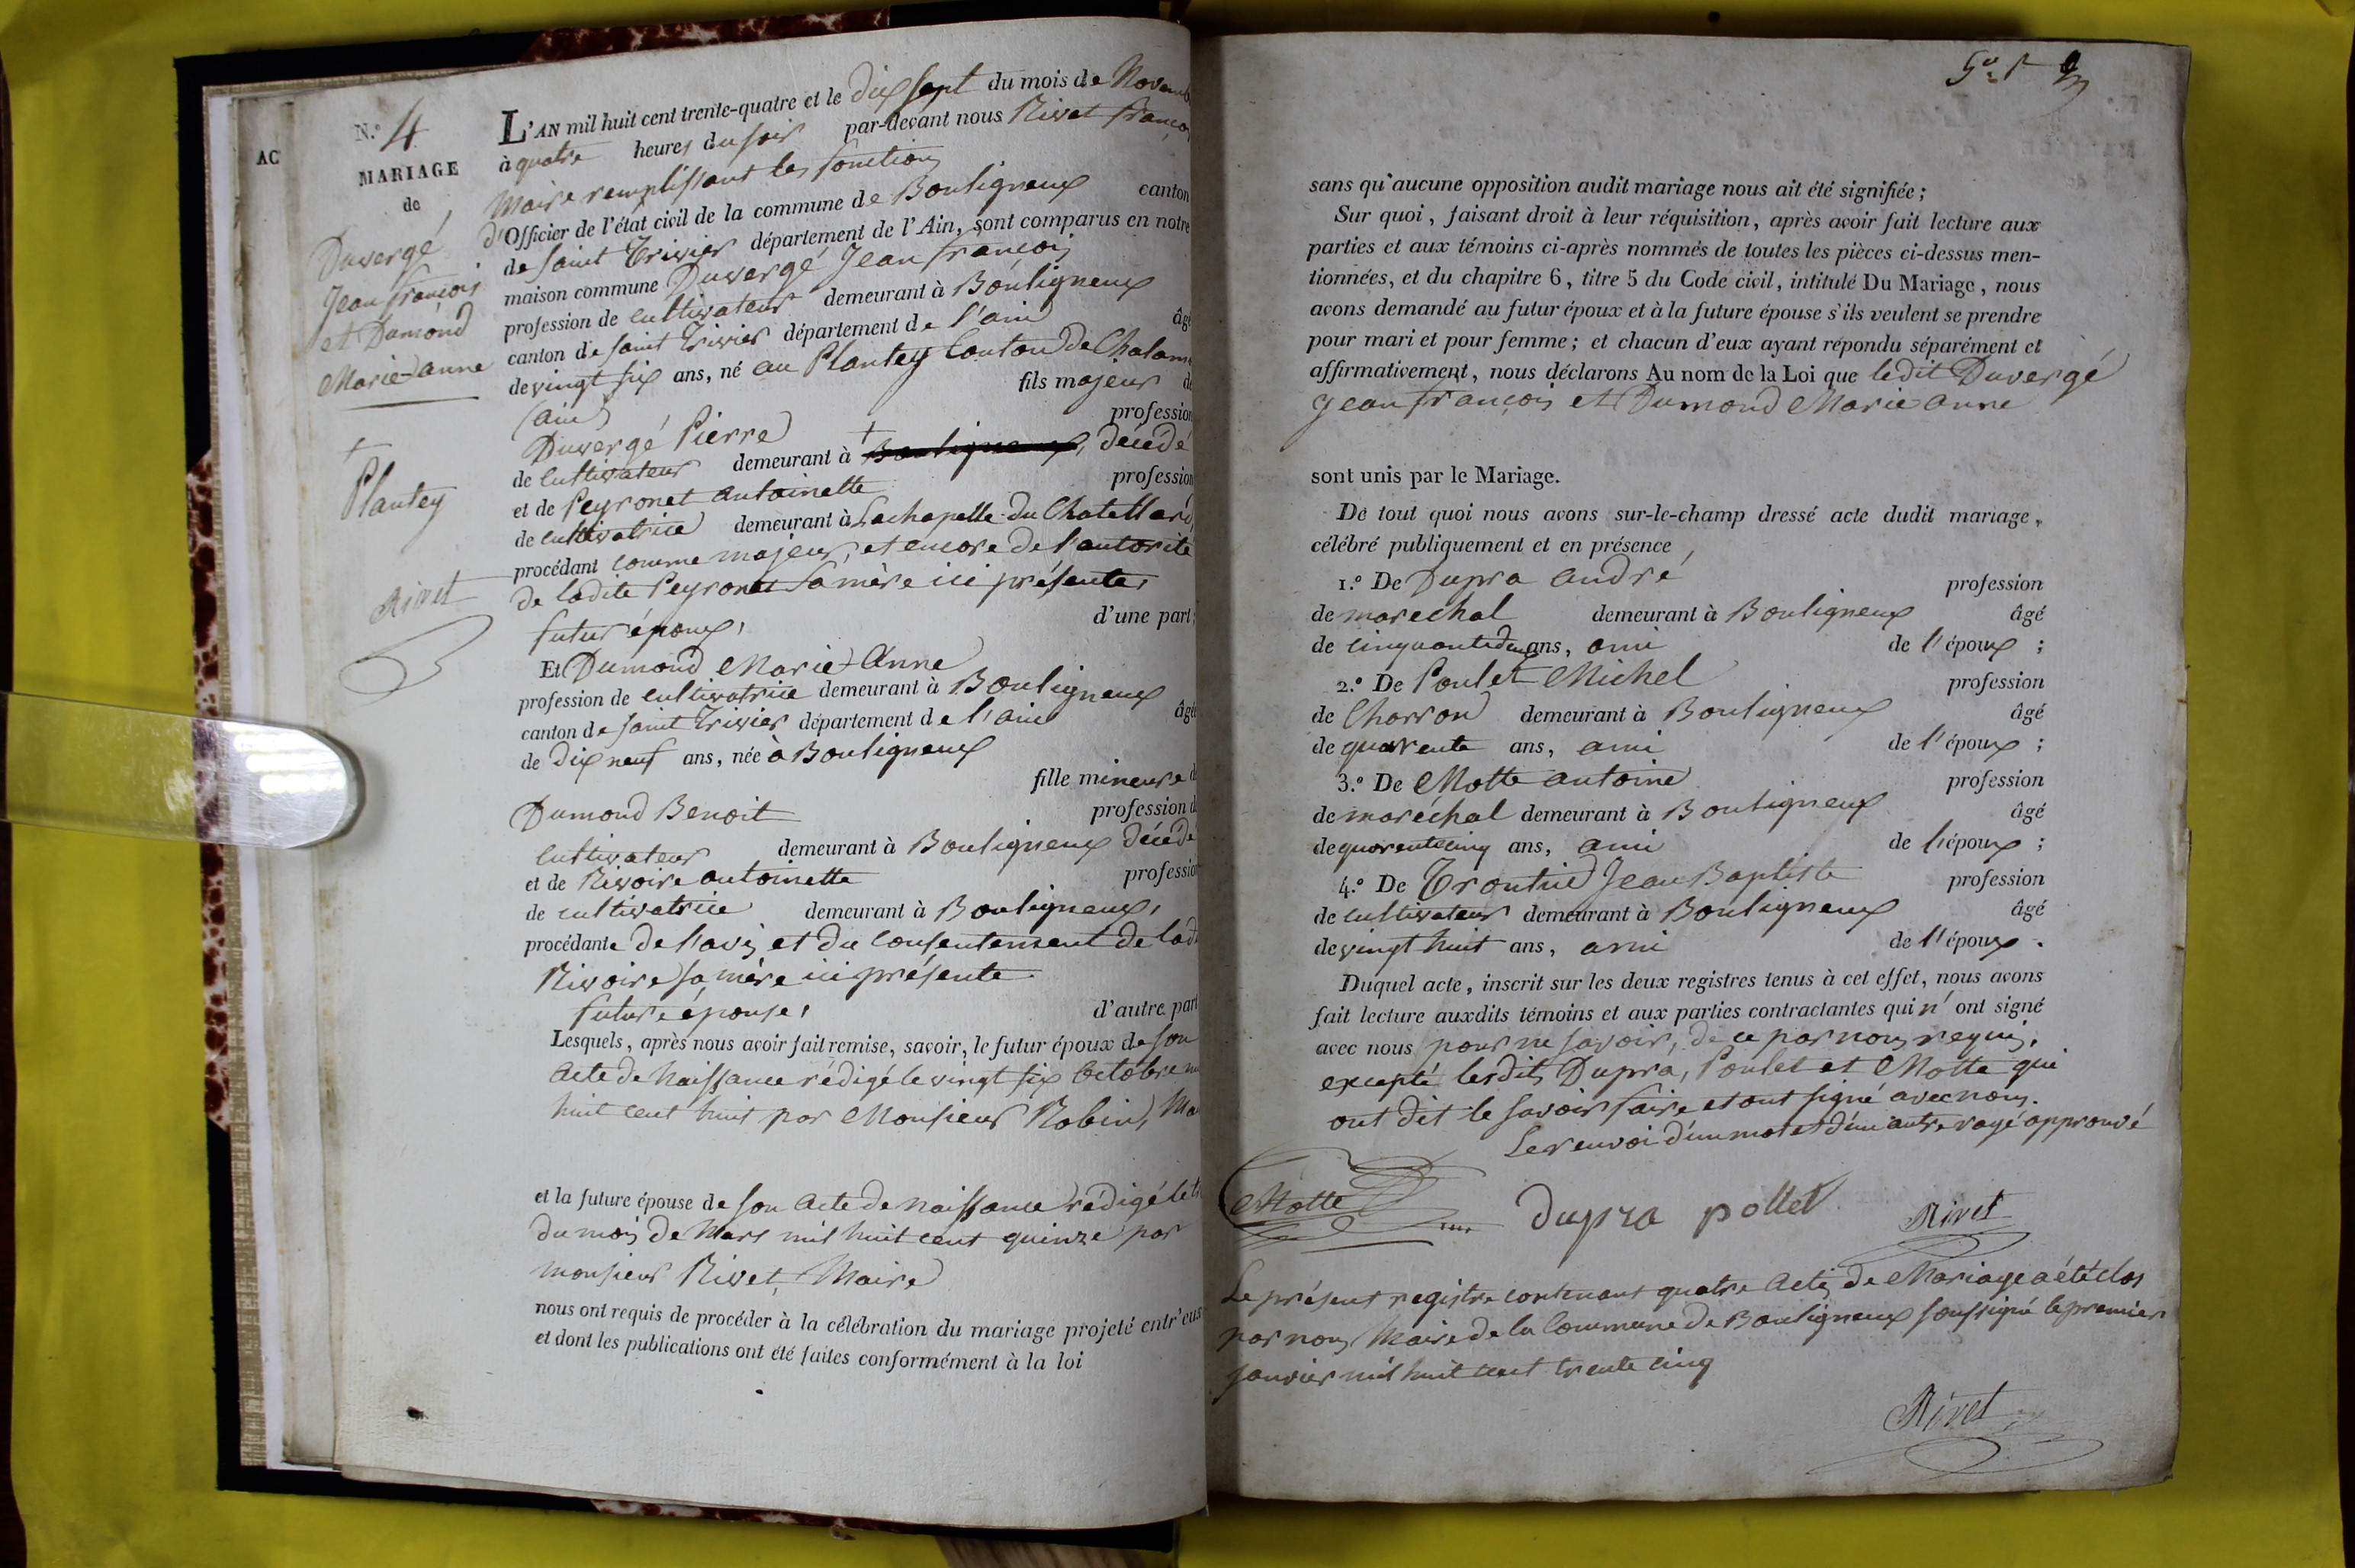 AC
N.º 4
MARIAGE
de
Duvergé
Jean françois
et Dumond
Marie-anne
Plantey
Rivet
L'AN mil huit cent trente-quatre et le dix sept du mois de Novemb
à quatre heures du soir par-devant nous Rivet franço
Maire remplissant les fonctions
d'Officier de l'état civil de la commune de Bouligneux canton
de saint Trivier département de l'Ain, sont comparus en notre
maison commune Duvergé Jean françois
profession de cultivateur demeurant à Bouligneux
canton de saint Trivier département de l'ain âgé
de vingt six ans, né au Plantey Canton de Chalam
(ain) fils majeur de
Duvergé Pierre profession
de cultivateur demeurant à + Bouligneux, décédé
et de Peyronet antoinette profession
de cultivatrice demeurant à Lachapelle du Chatellard,
procédant comme majeur, et encore de l'autorité
de ladite Peyronet sa mère ici présente,
futur époux, d'une part;
Et Dumond Marie-Anne
profession de cultivatrice demeurant à Bouligneux
canton de saint Trivier département de l'ain âgée
de dix neuf ans, née à Bouligneux
fille mineure d
Dumond Benoit profession d
cultivateur demeurant à Bouligneux décédé
et de Rivoire antoinette profession
de cultivatrice demeurant à Bouligneux,
procédante de l'avis et du consentement de lad
Rivoire sa mère ici présente
future épouse, d'autre part
Lesquels, après nous avoir fait remise, savoir, le futur époux de son
acte de Naissance rédigé le vingt six Octobre m
huit cent huit par Monsieur Robin, Ma
et la future épouse de son acte de naissance rédigé le
du mois de Mars mil huit cent quinze par
monsieur Rivet, Maire
nous ont requis de procéder à la célébration du mariage projeté entr'eux
et dont les publications ont été faites conformément à la loi
sans qu'aucune opposition audit mariage nous ait été signifiée;
Sur quoi, faisant droit à leur réquisition, après avoir fait lecture aux
parties et aux témoins ci-après nommés de toutes les pièces ci-dessus men-
tionnées, et du chapitre 6, titre 5 du Code civil, intitulé Du Mariage, nous
avons demandé au futur époux et à la future épouse s'ils veulent se prendre
pour mari et pour femme; et chacun d'eux ayant répondu séparément et
affirmativement, nous déclarons Au nom de la Loi que ledit Duvergé
Jean françois et Dumond Marie anne
sont unis par le Mariage.
De tout quoi nous avons sur-le-champ dressé acte dudit mariage,
célébré publiquement et en présence
1.º De Dupra andré profession
de marechal demeurant à Bouligneux âgé
de cinquante deux ans, ami de l'époux;
2.º De Poulet Michel profession
de Charron demeurant à Bouligneux âgé
de quarente ans, ami de l'époux;
3.º De Motte antoine profession
de maréchal demeurant à Bouligneux âgé
de quarente cinq ans, ami de l'époux;
4.º De Trontin Jean Baptiste profession
de cultivateur demeurant à Bouligneux âgé
de vingt huit ans, ami de l'époux.
Duquel acte, inscrit sur les deux registres tenus à cet effet, nous avons
fait lecture auxdits témoins et aux parties contractantes qui n'ont signé
avec nous pour ne savoir, de ce par nous requis,
excepté lesdits Dupra, Poulet et Motte qui
ont dit le savoir faire et ont signé avec nous.
Le renvoi d'un mot et d'un autre rayé approuvé
Motte dupra pollet Rivet
Le présent registre contenant quatre actes de Mariage a été clos
par nous Maire de la Commune de Bouligneux soussigné le premier
janvier mil huit cent trente cinq
Rivet